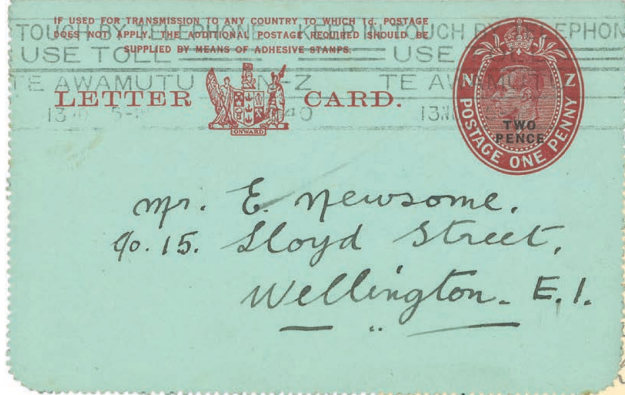 IF USED FOR TRANSMISSION TO ANY COUNTRY TO WHICH 1d. POSTAGE
DOES NOT APPLY, THE ADDITIONAL POSTAGE REQUIRED SHOULD BE
SUPPLIED BY MEANS OF ADHESIVE STAMPS.
TOUCH BY TELEPHONE KEEP IN TOUCH BY TELEPHON
USE TOLL USE
TE AWAMUTU N.Z TE AWAMUTU
LETTER CARD.
ONWARD
N Z
TWO
PENCE
POSTAGE ONE PENNY
Mr. E. Newsome.
c/o. 15. Lloyd Street,
Wellington. E.1.